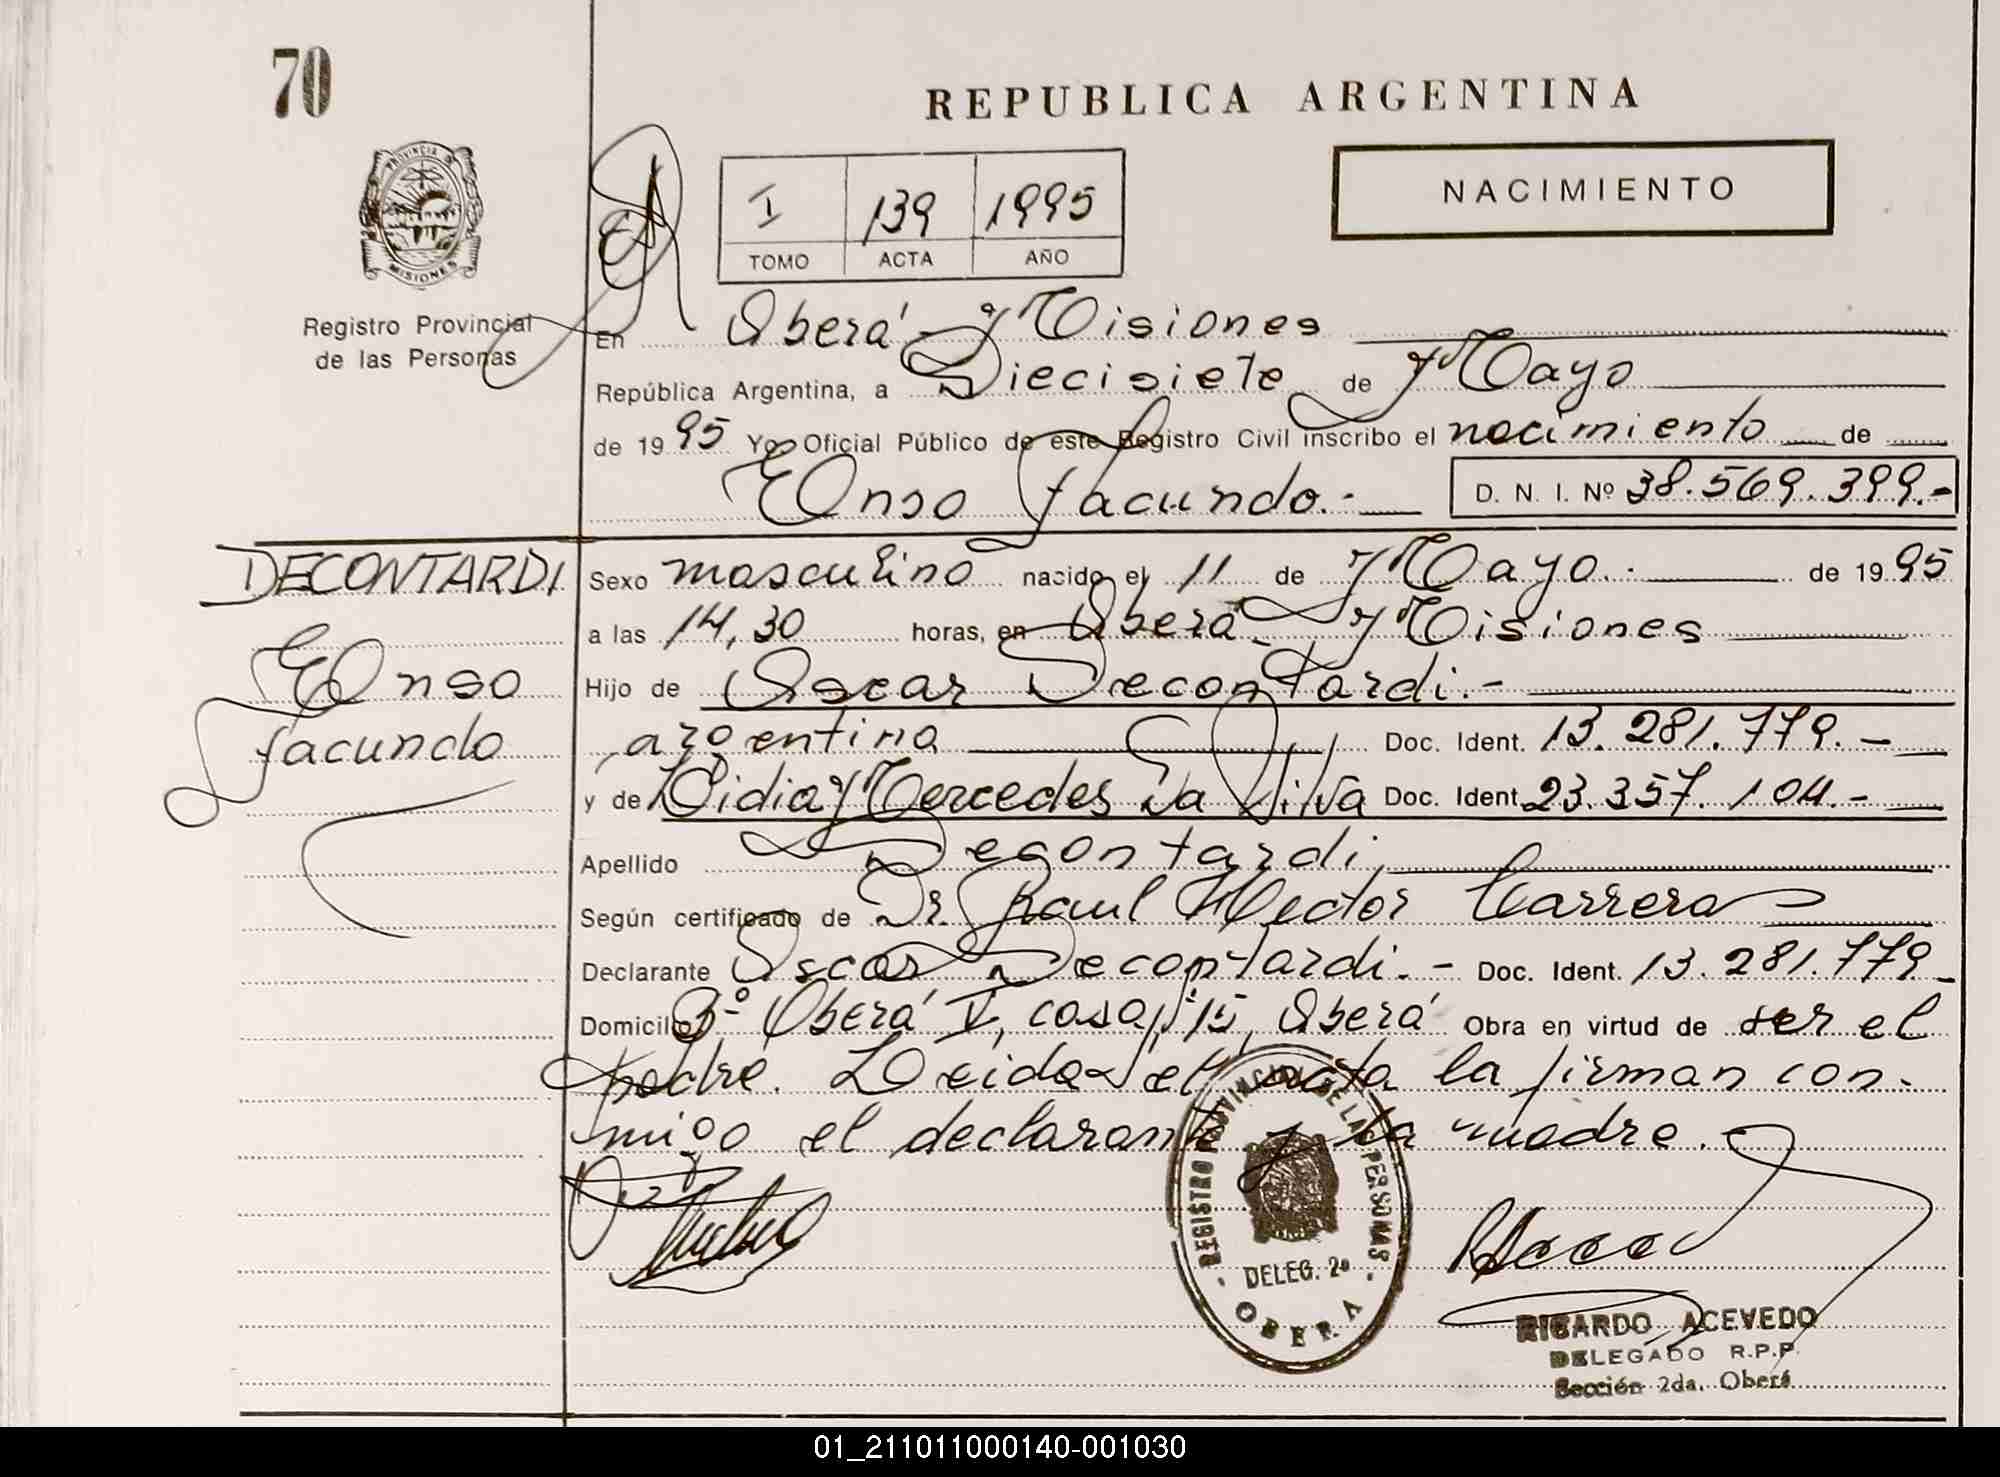 70
REPUBLICA ARGENTINA
PROVINCIA DE
MISIONES
Registro Provincial
de las Personas
I 139 1995
TOMO ACTA AÑO
NACIMIENTO
En Oberá - Misiones
República Argentina, a Diecisiete de Mayo
de 1995 Yo, Oficial Público de este Registro Civil inscribo el nacimiento de
Enso Facundo.-
D. N. I. Nº 38.569.399.-
DECONTARDI
Enso
Facundo
Sexo masculino nacido el 11 de Mayo.- de 1995
a las 14,30 horas, en Oberá - Misiones
Hijo de Oscar Decontardi.-
argentina Doc. Ident. 13.281.779.-
y de Lidia Mercedes Da Silva Doc. Ident. 23.357.104.-
Apellido Decontardi
Según certificado de Dr. Raul Hector Carrera
Declarante Oscar Decontardi.- Doc. Ident. 13.281.779-
Domicilio Bº Oberá V, casa 15, Oberá Obra en virtud de ser el
padre. Leida el acta la firman con-
migo el declarante y la madre.
REGISTRO PROVINCIAL DE LAS PERSONAS
DELEG. 2ª
OBERA
RICARDO ACEVEDO
DELEGADO R.P.P.
Sección 2da. Oberá
01_211011000140-001030